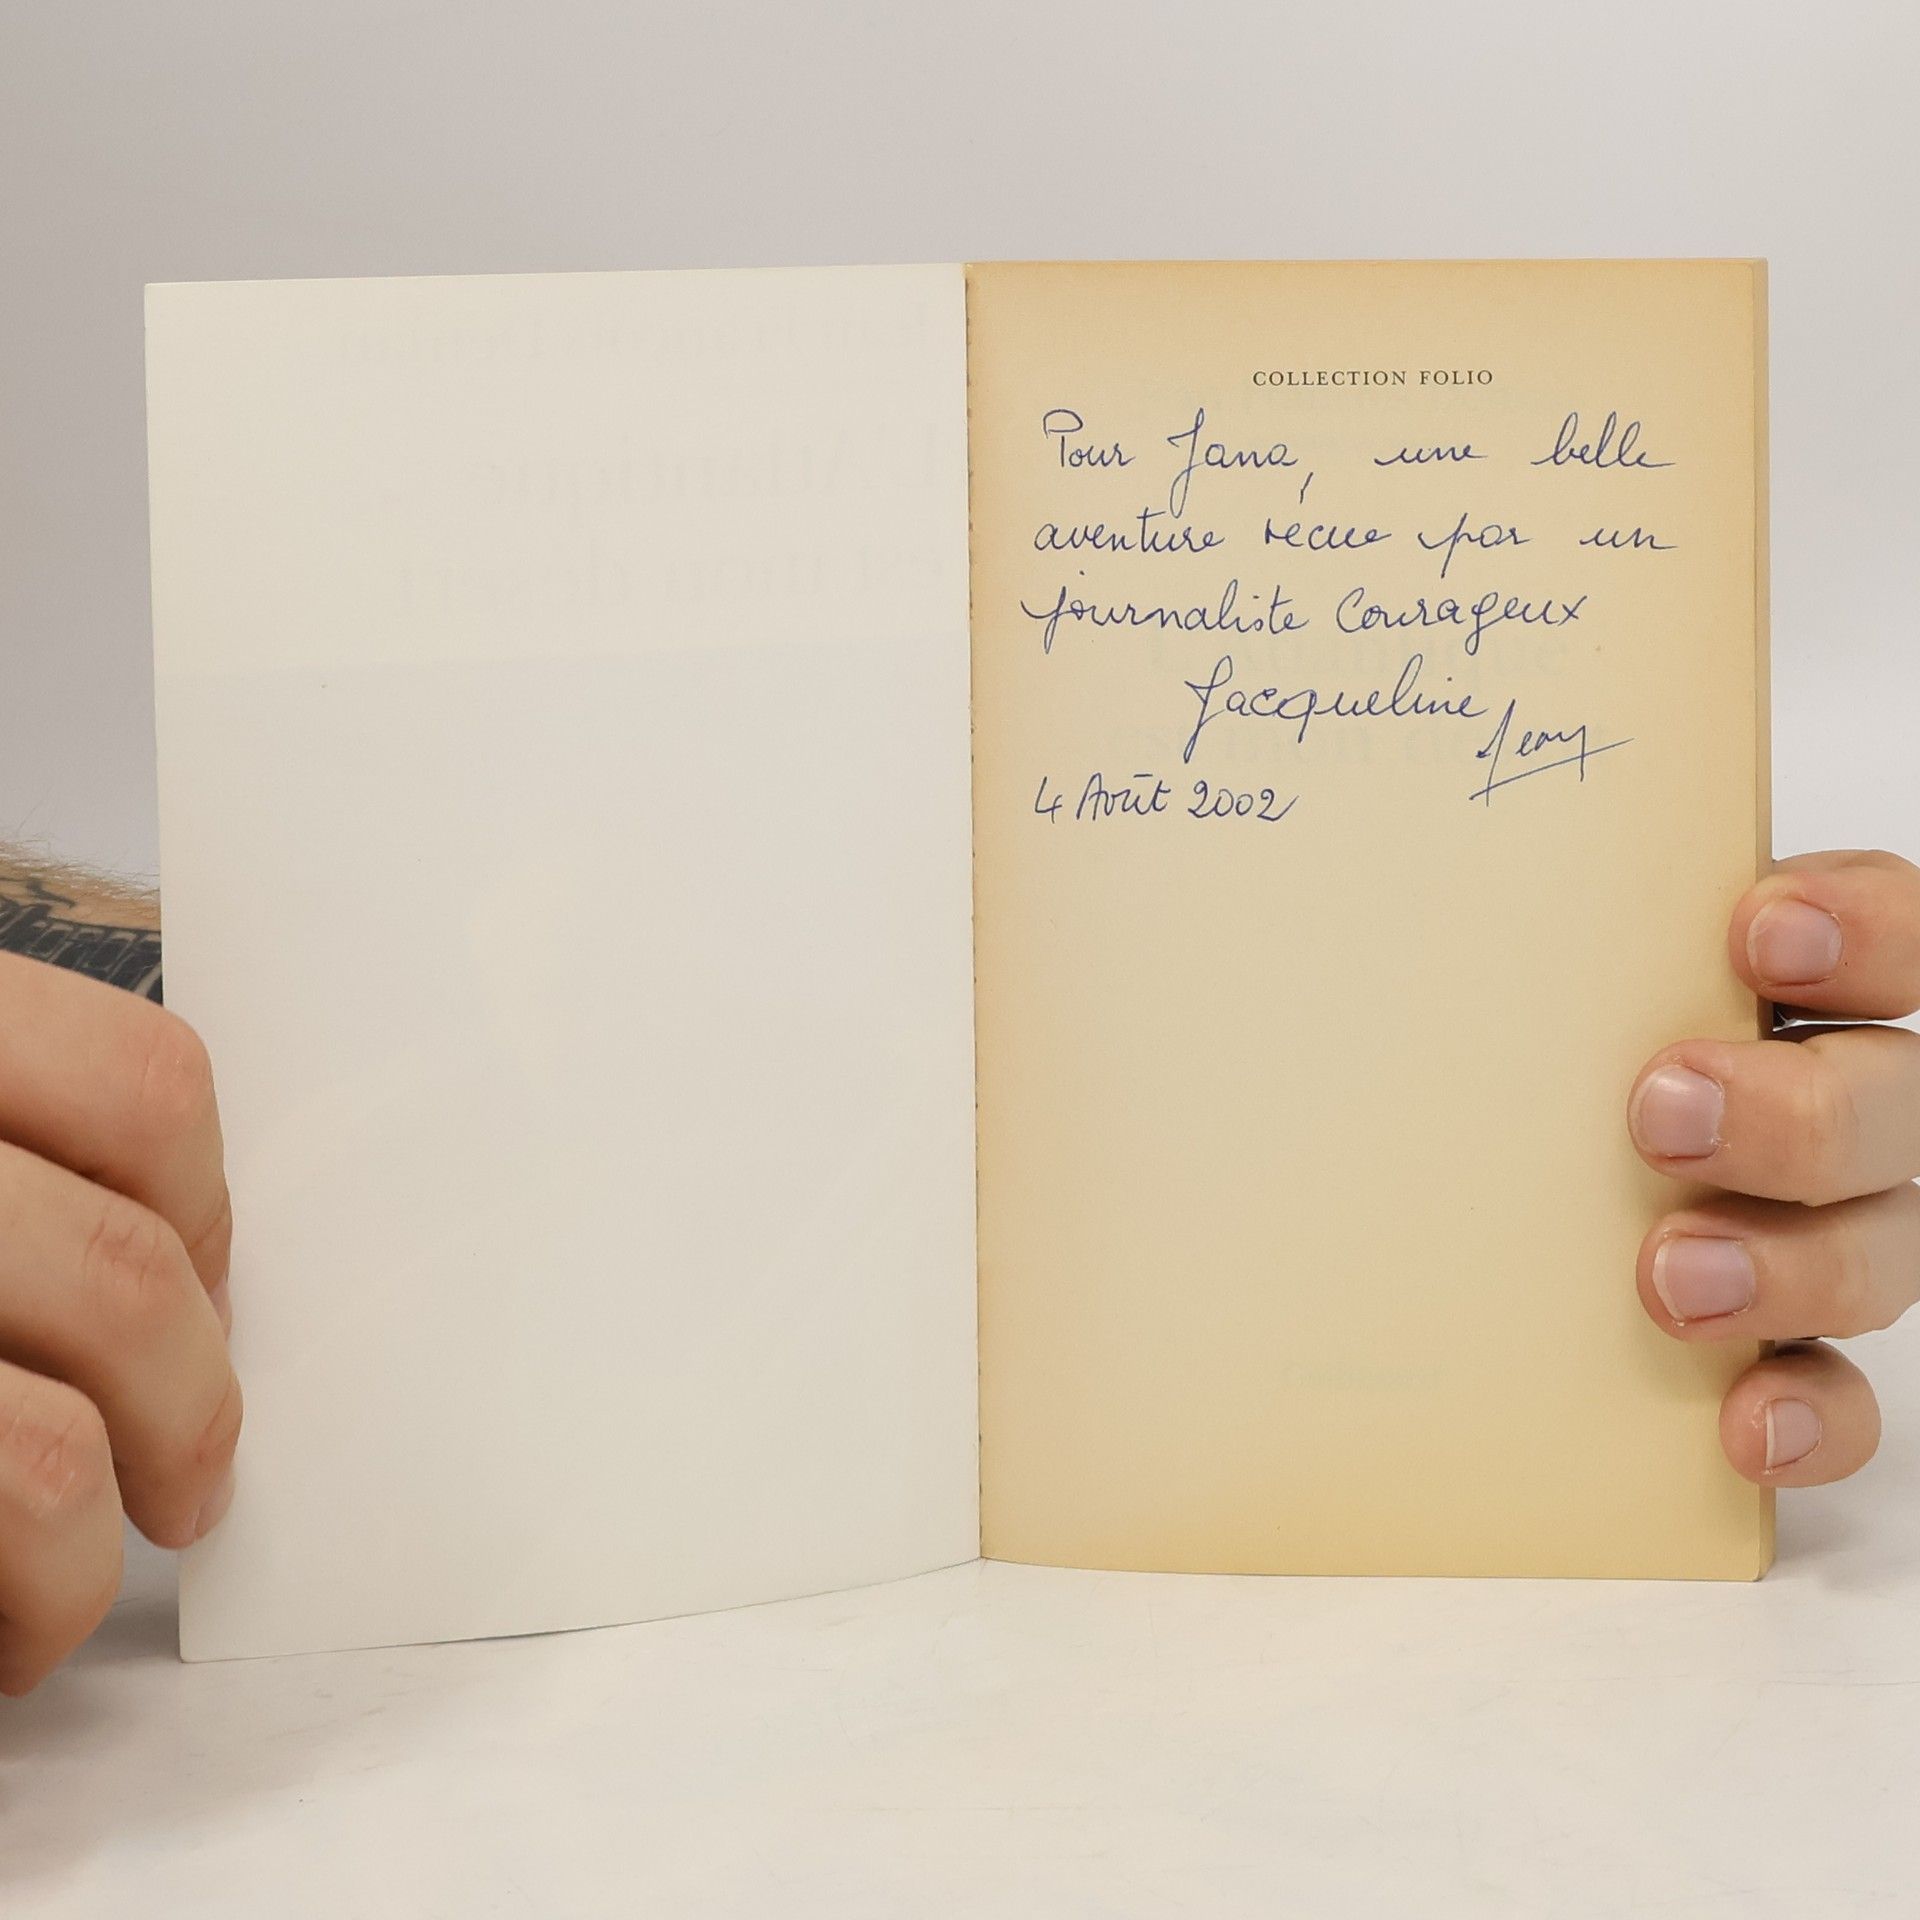 COLLECTION FOLIO
Pour Jana, une belle
aventure vécue par un
journaliste Courageux
Jacqueline
Jean
4 Août 2002